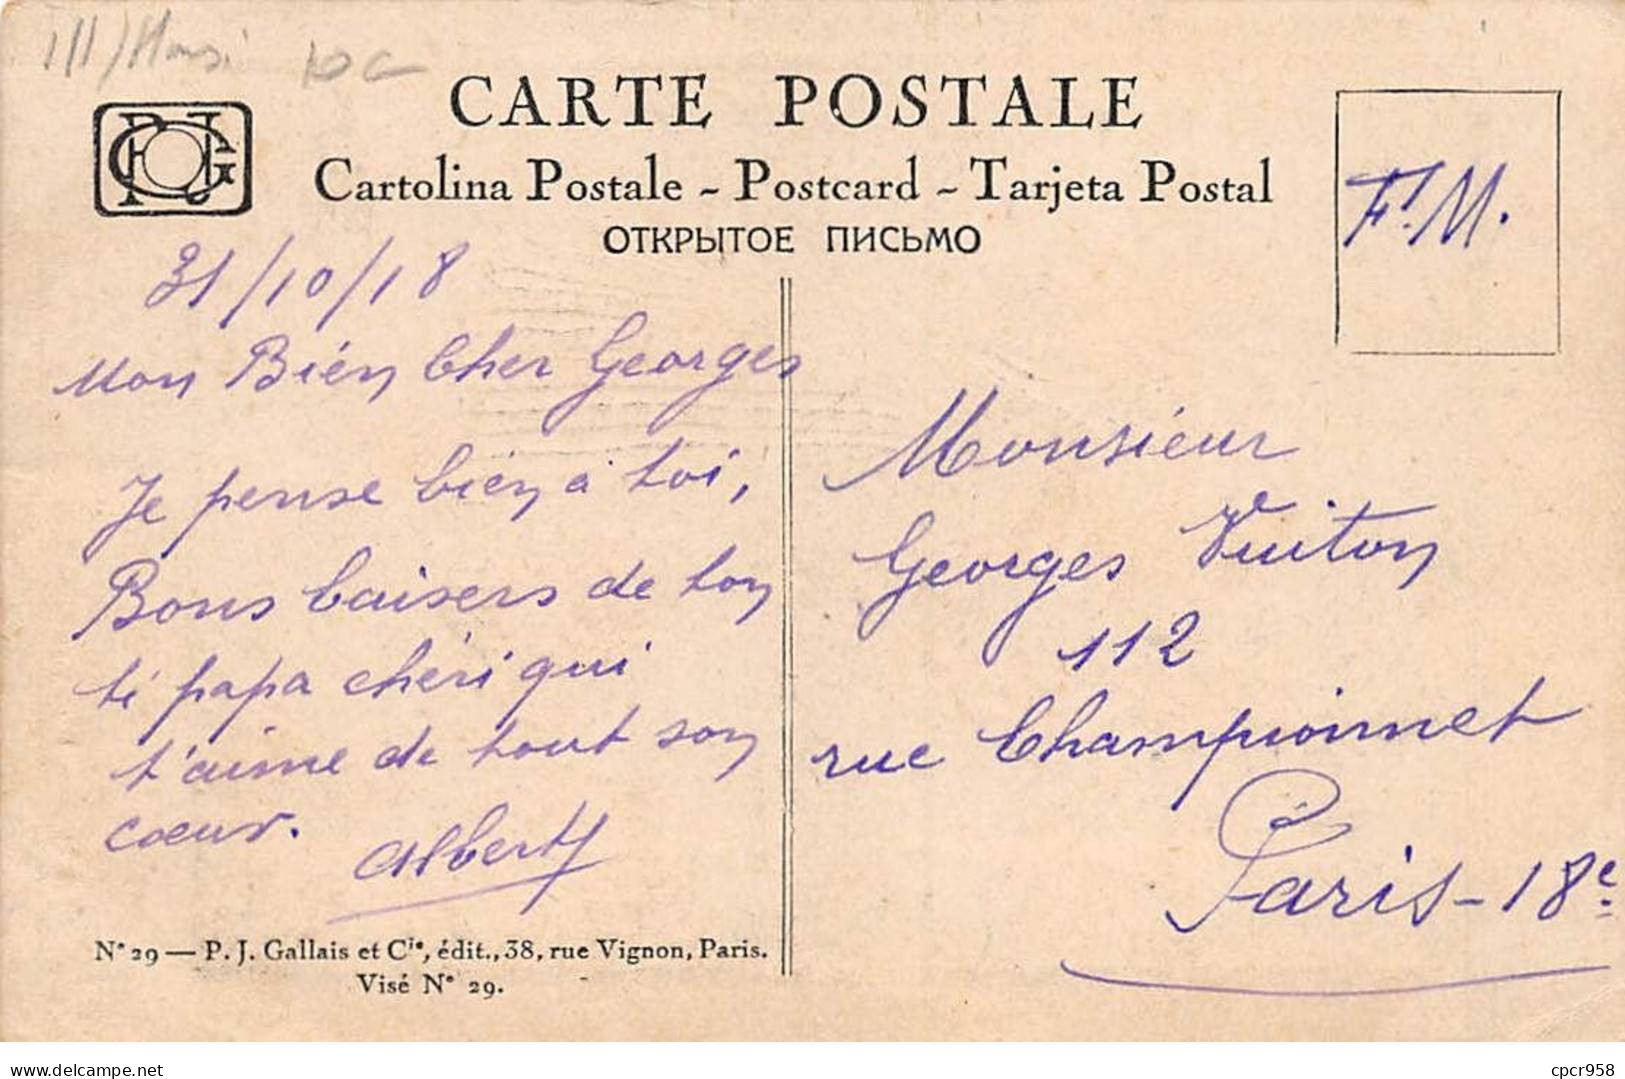 III/Hansi
CARTE POSTALE
Cartolina Postale - Postcard - Tarjeta Postal
ОТКРЫТОЕ ПИСЬМО
F.M.
31/10/18
Mon Bien Cher Georges
Je pense bien à toi,
Bons baisers de ton
ti papa chéri qui
t'aime de tout son
cœur.
Albert
N° 29 — P. J. Gallais et Cie, édit., 38, rue Vignon, Paris.
Visé N° 29.
Monsieur
Georges Vuiton
112
rue Championnet
Paris - 18e
delcampe.net
cpcr958